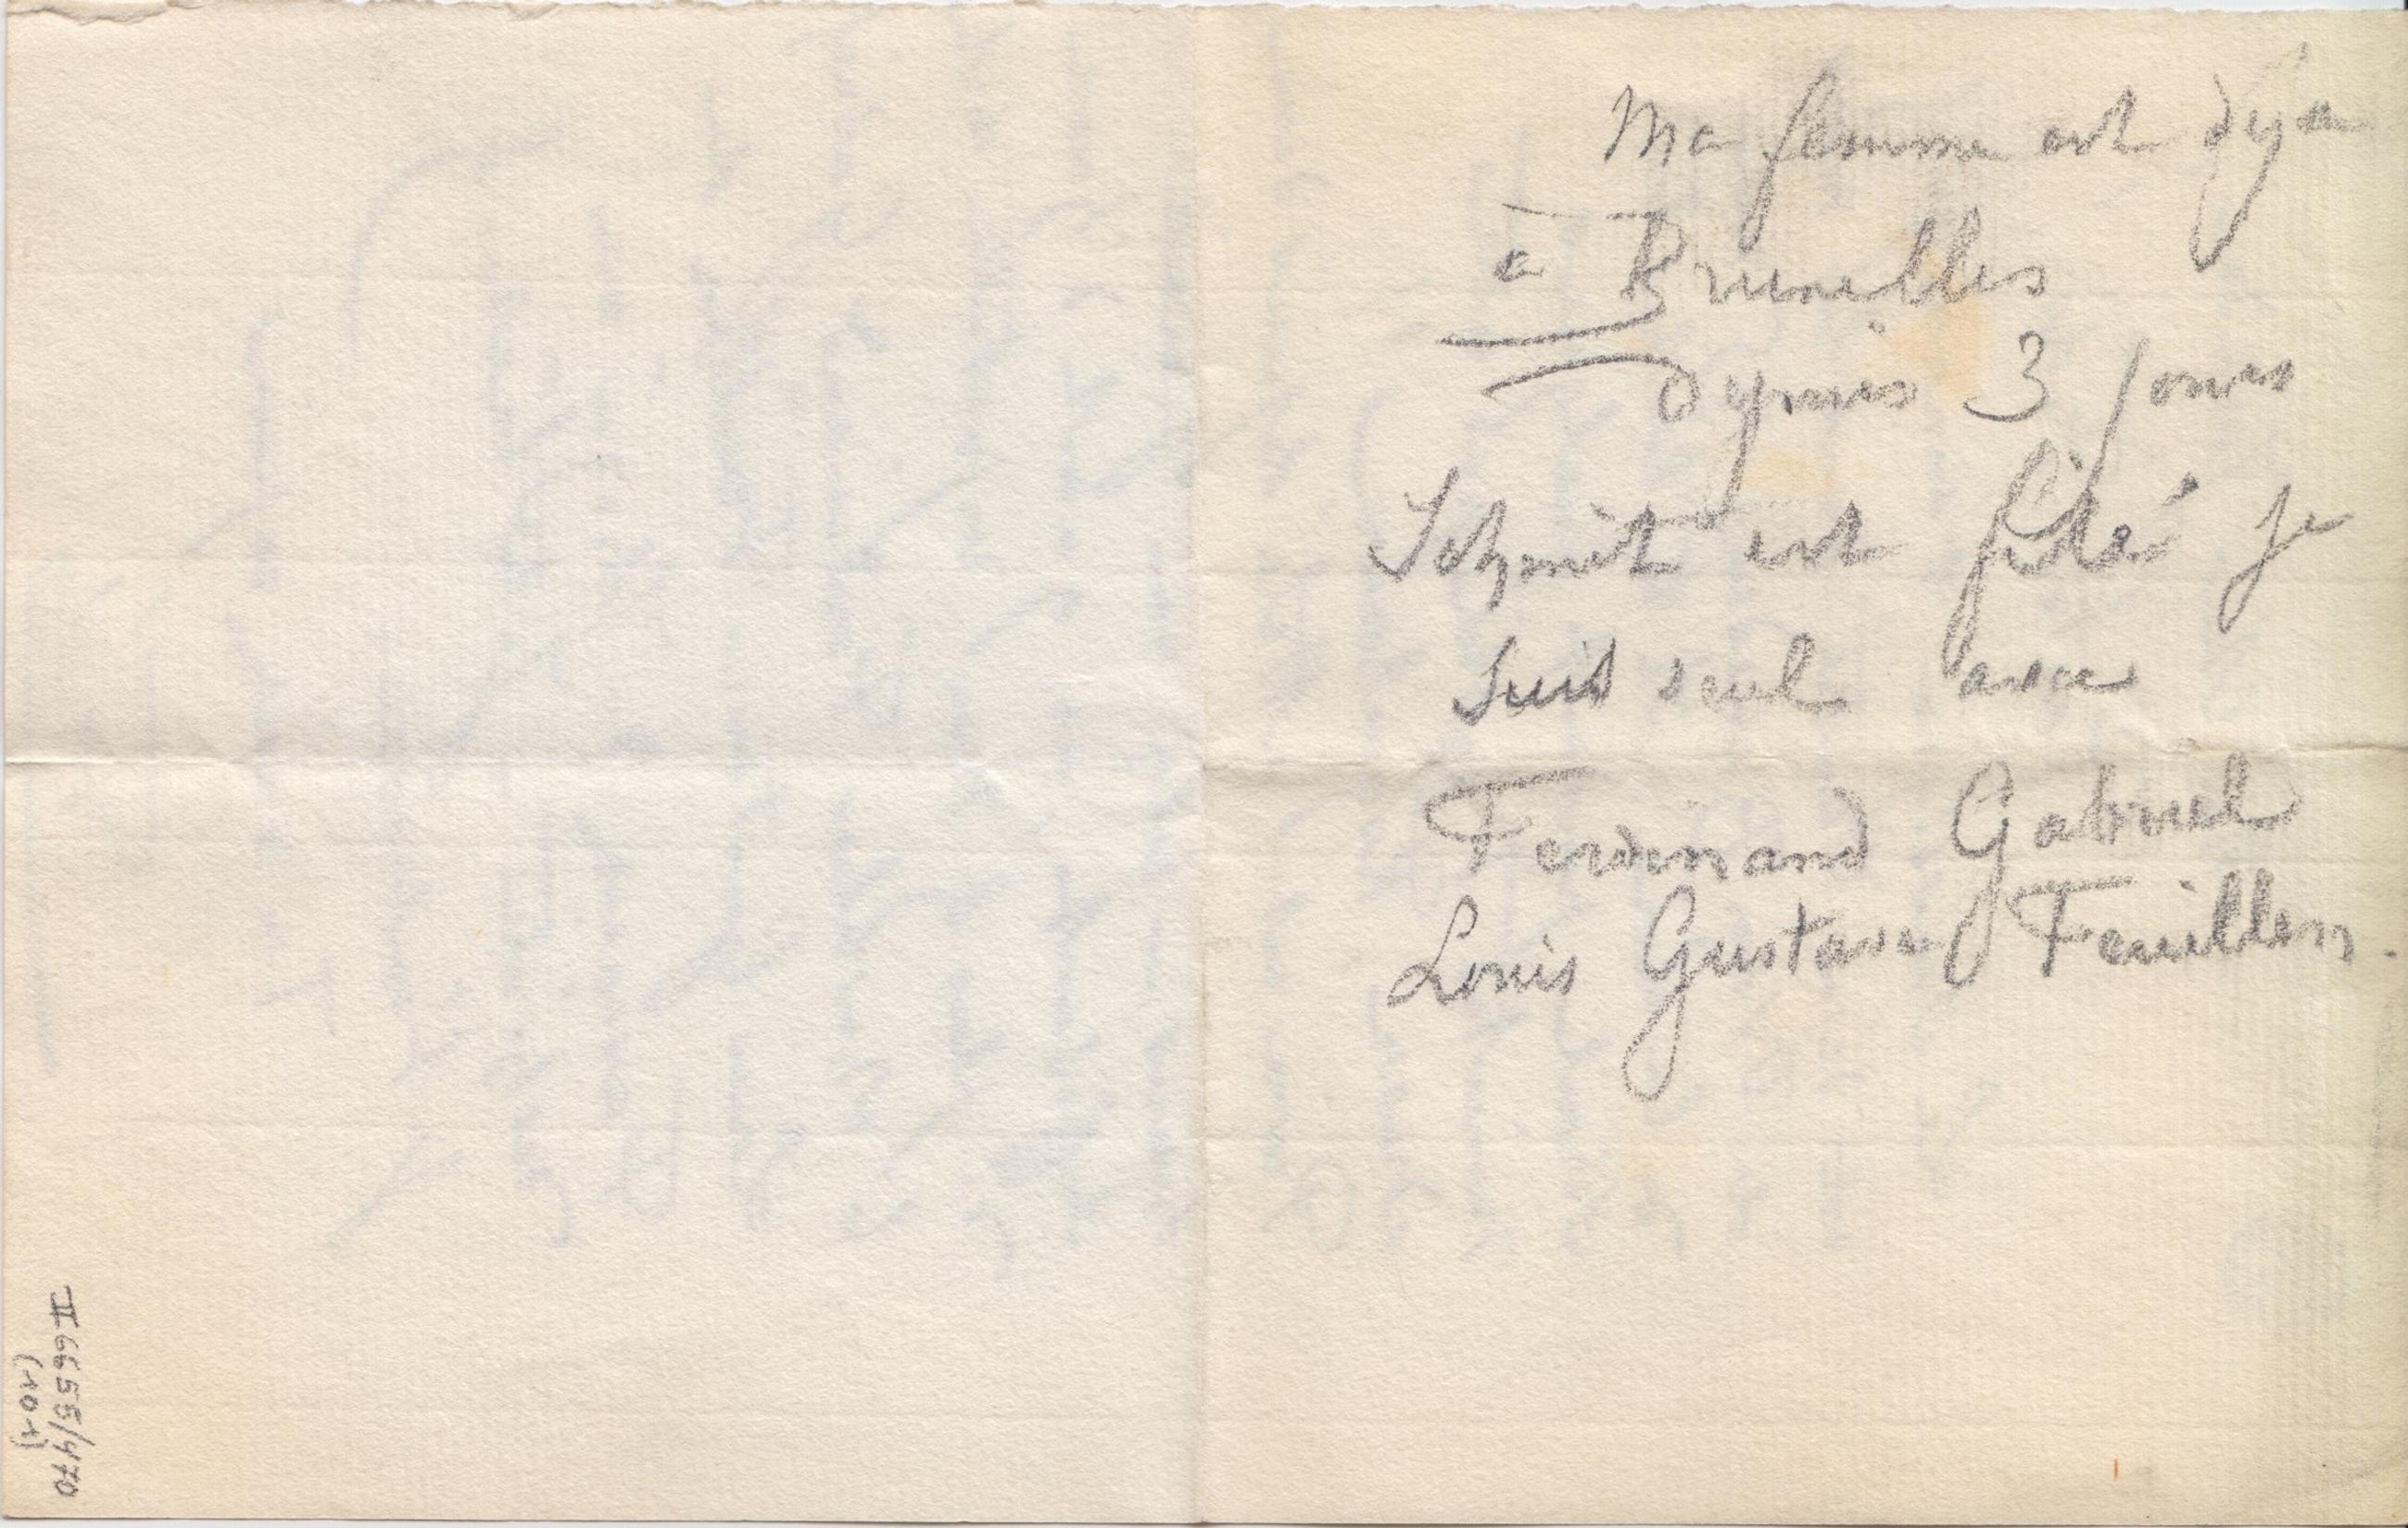 Ma femme est déja
à Bruxelles
depuis 3 jours
Schmit est filé je
suis seul avec
Ferdinand Gabriel
Louis Gustave Feuillien.
II 6655/470
(101)